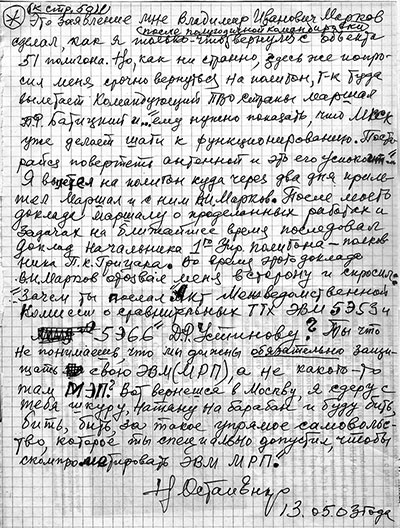 (к стр. 59!!)
* Это заявление мне Владимир Иванович Марков
после полугодичной командировки
сделал, как я только что вернулся с объекта
51 полигона. Но, как ни странно, здесь же попро-
сил меня срочно вернуться на полигон, т-к туда
вылетает Командующий ПВО страны маршал
П.Ф. Батицкий и... ему нужно показать, что
уже делает шаги к функционированию. Поста-
райся повертеть антенной и это его успокоит..."
Я вылетел на полигон куда через два дня приле-
тел Маршал и с ним В.И. Марков. После моего
доклада маршалу о проделанных работах и
задачах на ближайшее время последовал
доклад начальника 1го Упр. полигона - полков-
ника П.К. Грицака. Во время этого доклада
В.И. Марков отозвал меня в сторону и спросил:
"Зачем ты послал Акт Межведомственной
Комиссии о сравнительных ТТХ ЭВМ 5Э53 и
5Э66 Д.Ф. Устинову? Ты что
не понимаешь, что мы должны обязательно защи-
щать свою ЭВМ (МРП), а не какого-то
там МЭП? Вот вернешься в Москву, я сдеру с
тебя шкуру, натяну на барабан и буду бить,
бить, бить за такое упрямое самовольс-
тво, которое ты специально допустил, чтобы
скомпрометировать ЭВМ МРП."
Н Остапенко
13.05.03 года